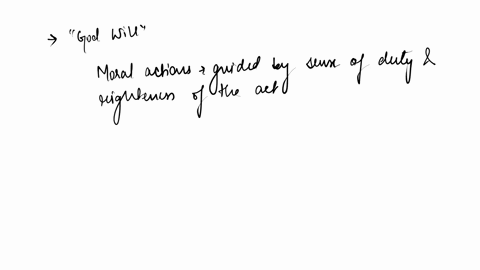 → "Good Will"
Moral actions → guided by sense of duty &
righteness of the act